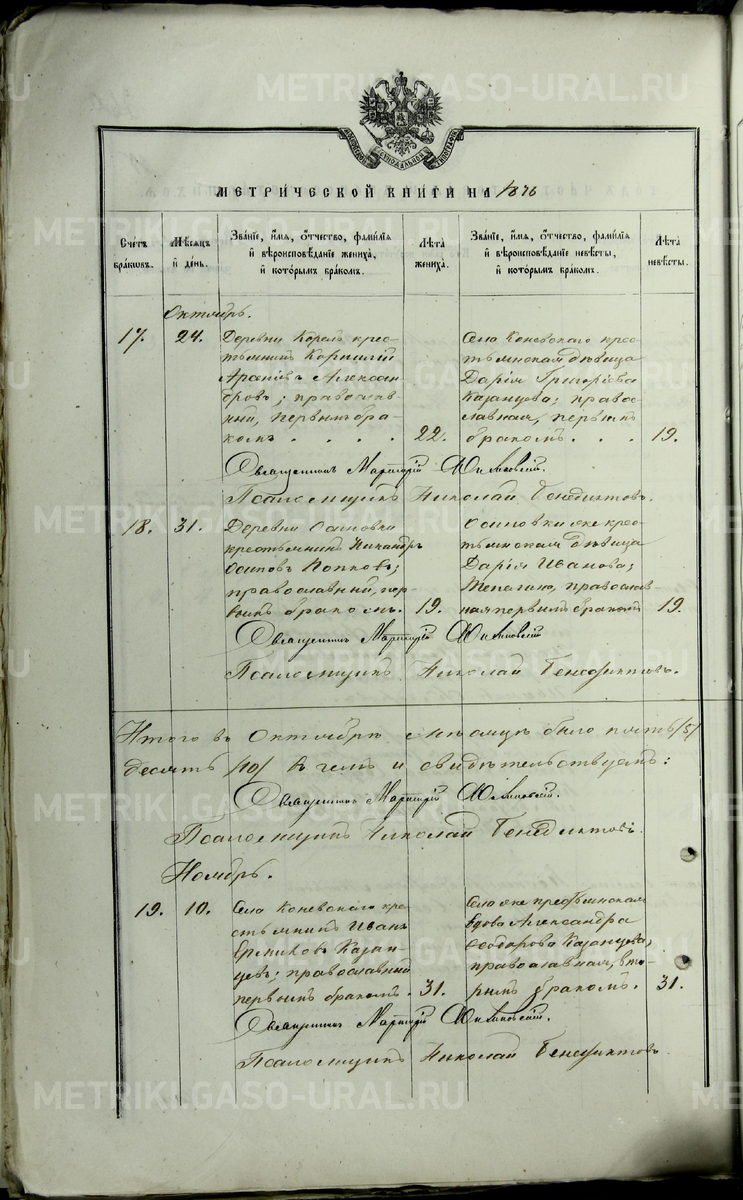 METRIKI.GASO-URAL.RU
МОСКОВСКОЙ СѴНОДАЛЬНОЙ ТИПОГРАФІИ
МЕТРИЧЕСКОЙ КНИГИ НА 1876
Счетъ браковъ.
Мѣсяцъ и день.
Званїе, имя, отчество, фамилїя и вѣроисповѣданїе жениха, и которымъ бракомъ.
Лѣта жениха.
Званїе, имя, отчество, фамилїя и вѣроисповѣданїе невѣсты, и которымъ бракомъ.
Лѣта невѣсты.
Октябрь.
17. 24.
Деревни Корелъ крес-
тьянинъ Корнилій
Александ-
ровъ; православ-
ный, первымъ бра-
комъ . . . . 22.
Села Коневскаго крес-
тьянская дѣвица
Дарія Григоріева
Казанцова; право-
славная, первымъ
бракомъ. . . 19.
Священникъ
Псаломщикъ Николай Бенедиктовъ.
18. 31.
Деревни Осиновки
крестьянинъ Никандръ
Осиповъ Попковъ;
православный, пер-
вымъ бракомъ. 19.
Осиновки же крес-
тьянская дѣвица
Дарія Иванова;
православ-
ная первымъ бракомъ 19.
Священникъ
Псаломщикъ Николай Бенедиктовъ.
Итого въ Октябрѣ мѣсяцѣ было пять /5/
десять /10/ въ чемъ и свидѣтельствуемъ:
Священникъ
Псаломщикъ Николай Бенедиктовъ.
Ноябрь.
19. 10.
Села Коневскаго кре-
стьянинъ Иванъ
Казан-
цевъ; православный
первымъ бракомъ. 31.
Села же крестьянская
вдова Александра
Ѳеодорова Казанцева,
православная, вто-
рымъ бракомъ. 31.
Священникъ
Псаломщикъ Николай Бенедиктовъ